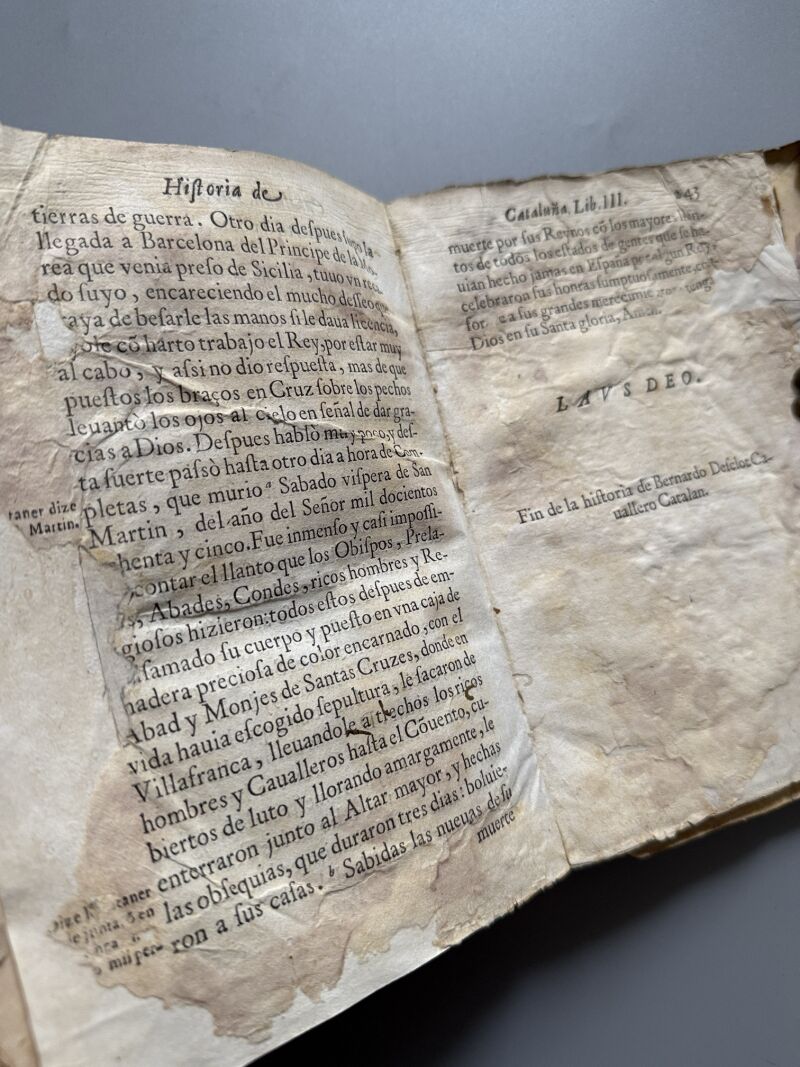 Hiſtoria de
tierras de guerra. Otro dia deſpues ſupo la
llegada a Barcelona del Principe de la Mo-
rea que venia preſo de Sicilia, tuuo vn reca
do ſuyo, encareciendo el mucho deſſeo que
traya de beſarle las manos ſi le daua licencia,
cõ harto trabajo el Rey, por eſtar muy
al cabo, y aſsi no dio reſpueſta, mas de que
pueſtos los braços en Cruz ſobre los pechos
leuantò los ojos al cielo en ſeñal de dar gra-
cias a Dios. Deſpues hablò muy poco, y deſ-
ta ſuerte paſsò haſta otro dia a hora de Com-
pletas, que murio ª Sabado viſpera de San
Martin, del año del Señor mil docientos
ochenta y cinco. Fue inmenſo y caſi impoſſi-
contar el llanto que los Obiſpos, Prela-
Abades, Condes, ricos hombres y Re-
gioſos hizieron: todos eſtos deſpues de em-
famado ſu cuerpo y pueſto en vna caja de
madera precioſa de color encarnado, con el
Abad y Monjes de Santas Cruzes, donde en
vida hauia eſcogido ſepultura, le ſacaron de
Villafranca, lleuandole a trechos los ricos
hombres y Caualleros haſta el Cõuento, cu-
biertos de luto y llorando amargamente, le
enterraron junto al Altar mayor, y hechas
las obſequias, que duraron tres dias: boluie-
ron a ſus caſas. ᵇ Sabidas las nueuas de ſu
muerte
taner dize
Martin.
Dize taner
junta. õ en
mil per-
Cataluña, Lib. III. 243
muerte por ſus Reynos cõ los mayores
tos de todos los eſtados de gentes que ſe ha-
uian hecho jamas en Eſpaña por algun Rey,
celebraron ſus honras ſumptuoſamente,
for a ſus grandes merecimie tenga
Dios en ſu Santa gloria, Amen.
LAVS DEO.
Fin de la hiſtoria de Bernardo Deſclot Ca-
uallero Catalan.